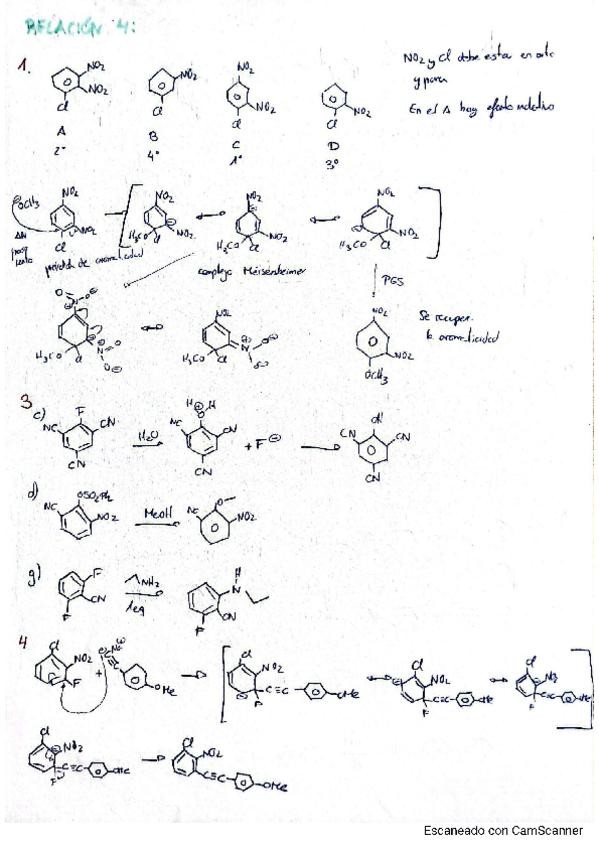 RELACIÓN 4:
1.
NO2
NO2
Cl
A
2º
NO2
Cl
B
4º
NO2
NO2
Cl
C
1º
NO2
Cl
D
3º
NO2 y Cl debe estar en orto
y para
En el A hay efecto inductivo
OCH3
NO2
NO2
Cl
pérdida de aromaticidad
NO2
NO2
H3CO Cl
NO2
NO2
H3CO Cl
NO2
NO2
H3CO Cl
complejo Meisenheimer
PGS
H3CO Cl
NO2
H3CO Cl
NO2
NO2
OCH3
Se recupera
la aromaticidad
3
c)
F
NC CN
CN
H2O
H H
NC CN
CN
+ F
OH
CN CN
CN
d)
OSO2Ph
NC NO2
MeOH
NC O
NO2
g)
F
CN
F
NH2
1eq
H
N
CN
F
4
Cl
NO2
F
+
OMe
Cl
NO2
F
C≡C
OMe
Cl
NO2
F
C≡C
OMe
Cl
NO2
F
C≡C
OMe
Cl
NO2
F
C≡C
OMe
Cl
NO2
C≡C
OMe
Escaneado con CamScanner